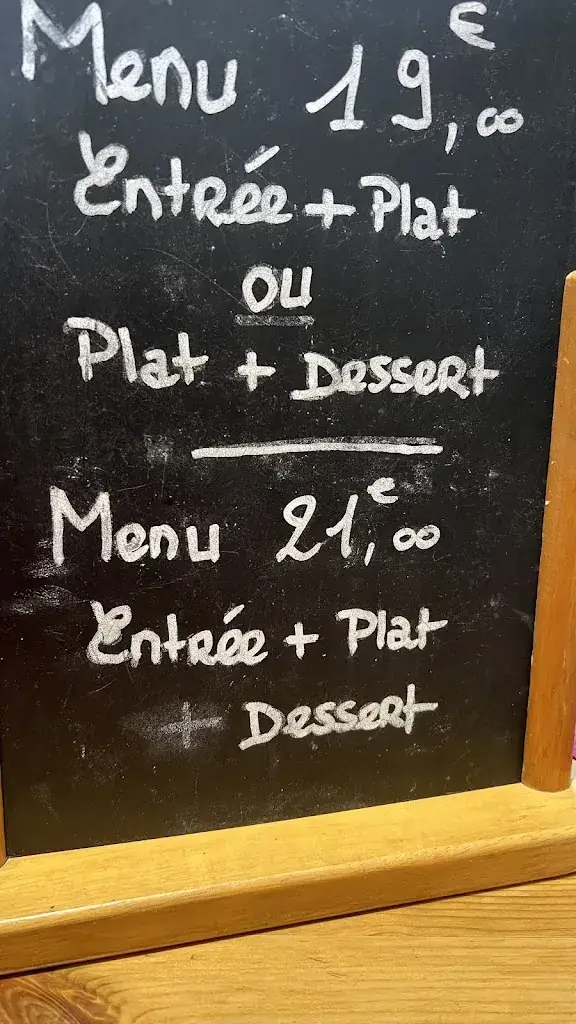 Menu 19,00€
Entrée + Plat
ou
Plat + Dessert
Menu 21,00€
Entrée + Plat
+ Dessert